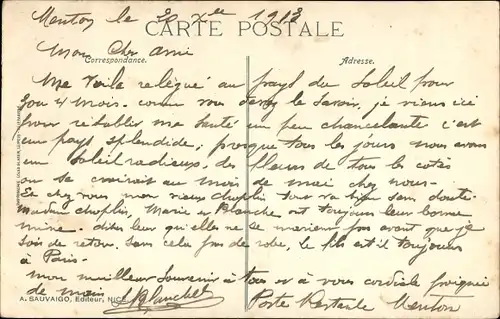 Menton le 30 Xbre 1913
CARTE POSTALE
Mon Cher ami
Correspondance. Adresse.
Me voila relégué au pays du Soleil pour
3 ou 4 mois. comm vous devez le savoir, je viens ici
pour rétablir ma santé un peu chancelante c'est
un pays splendide; presque tous les jours nous avons
un soleil radieux, des fleurs de tous les cotés
on se croirait au mois de mai chez nous.
Et chez vous mon vieux choplin tout va bien sans doute.
madame choplin, Marie et Blanche ont toujours leur bonne
mine. dites leur qu'elles ne se marient pas avant que je
sois de retour. sans cela pas de robe, le fils est il toujours
à Paris.
Mon meilleur Souvenir à tous et à vous cordiale poignée
de main Blanchet Poste Restante Menton
A. SAUVAIGO, Editeur, NICE